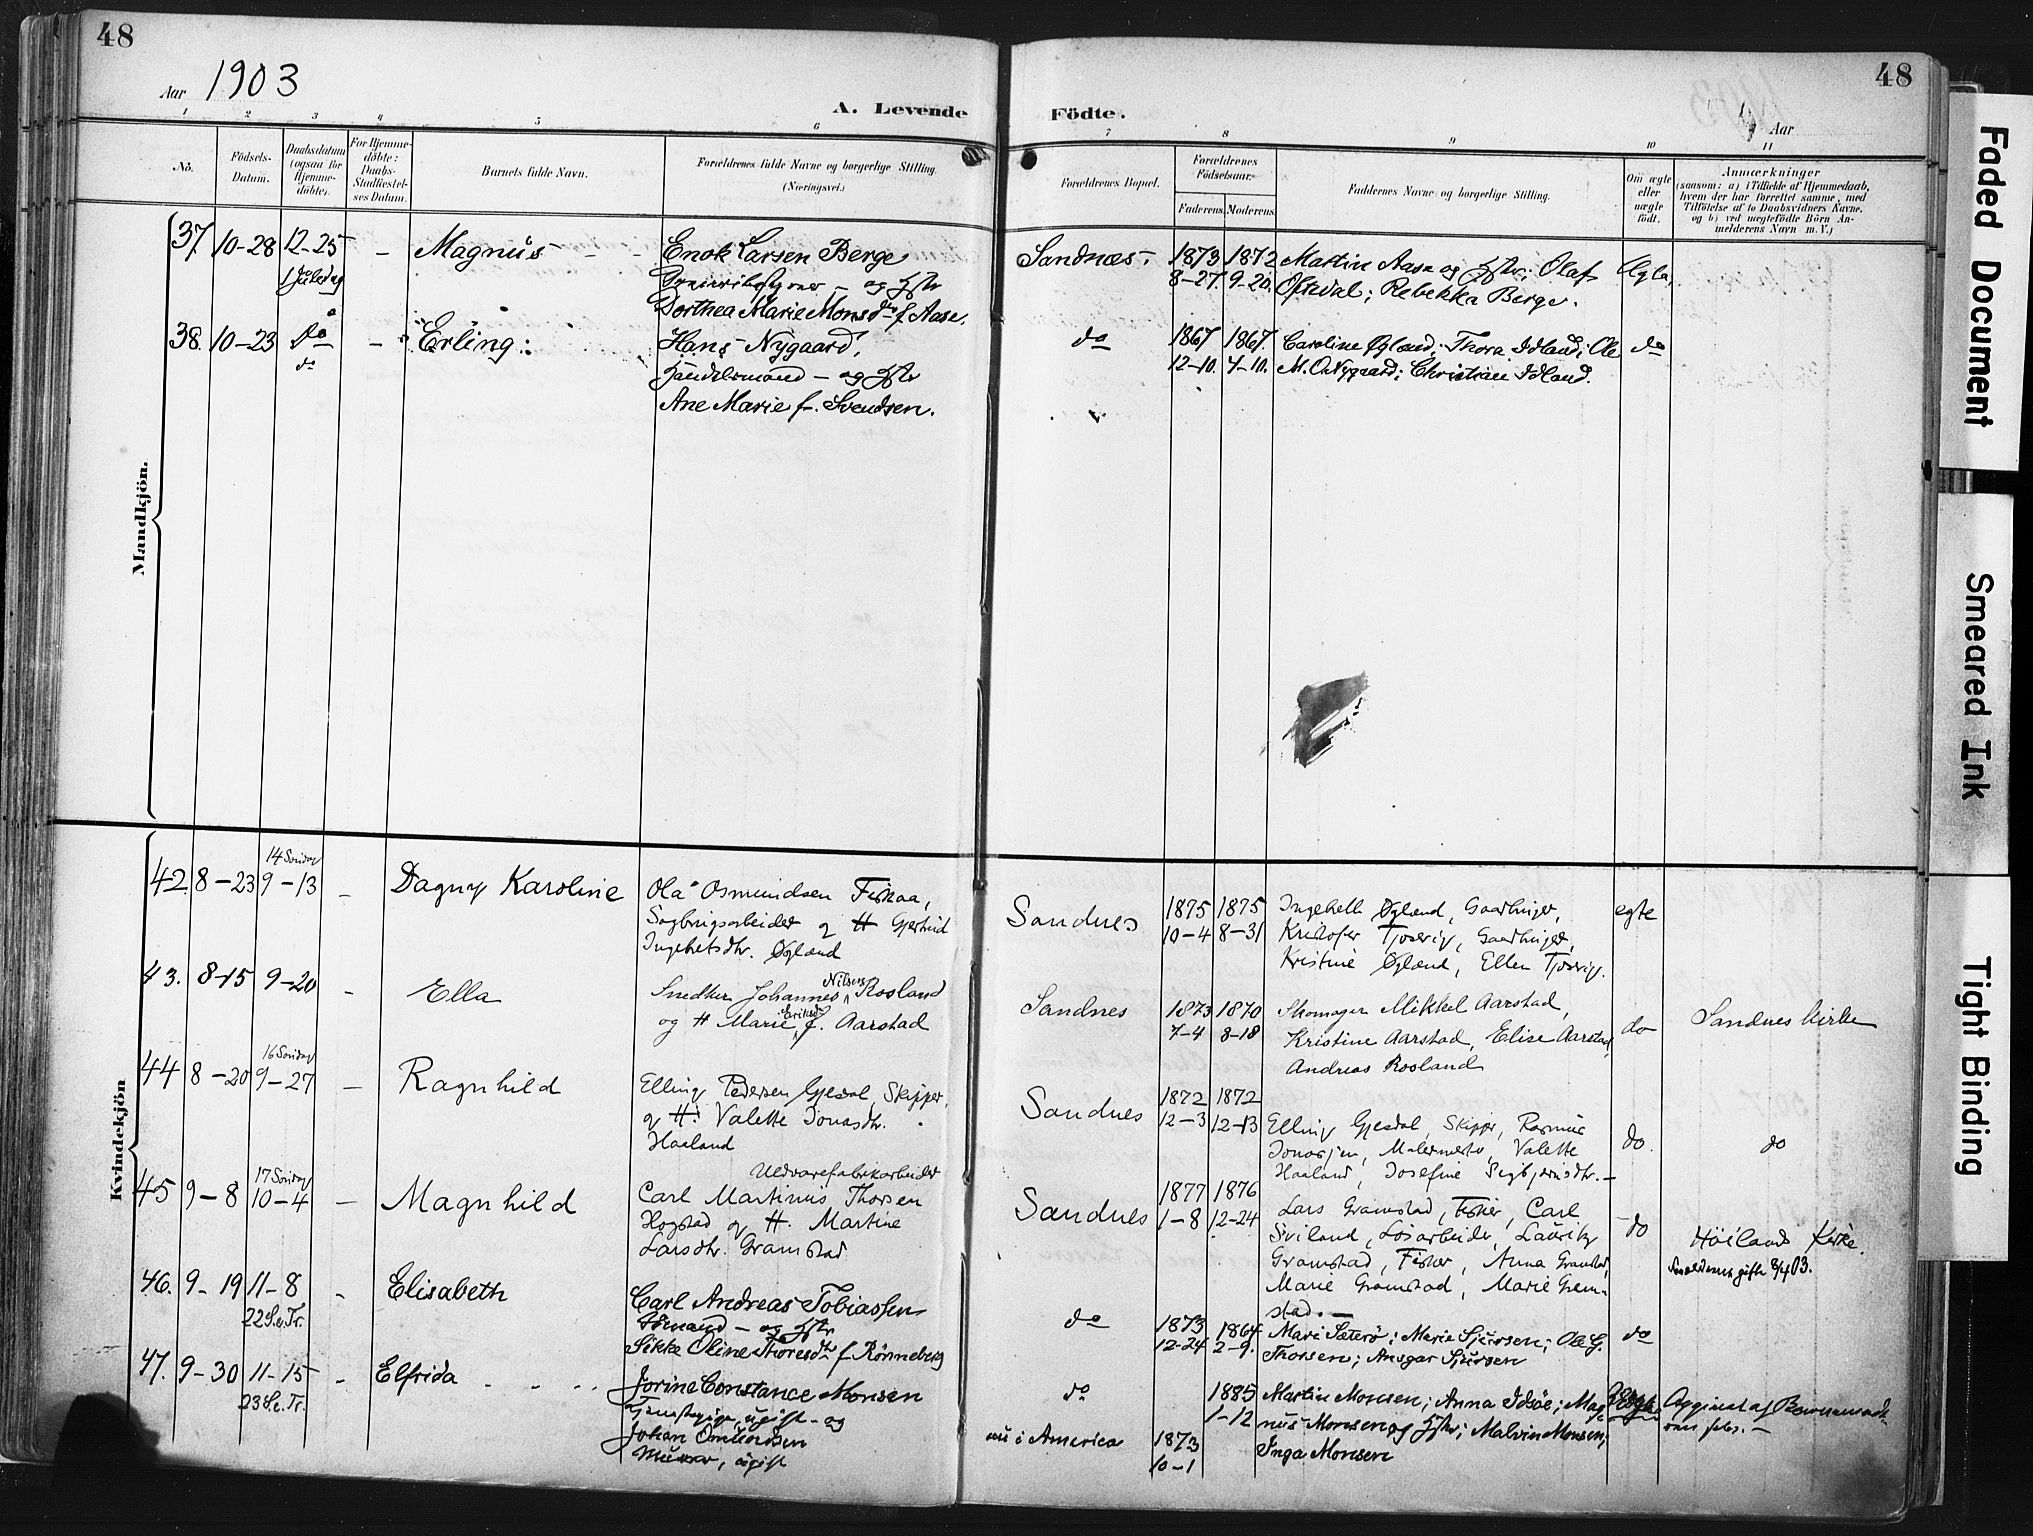 48
Aar 1903
A. Levende
1 2 3 4 5 6
No.
Födsels-Datum.
Daabsdatum (ogsaa for Hjemme-döbte).
For Hjemme-döbte: Daabs-Stadfæstel-ses Datum.
Barnets fulde Navn.
Forældrenes fulde Navne og borgerlige Stilling. (Næringsvei.)
Mandkjön.
37 10-28 12-25 - Magnus - - Enok Larsen Berge
1 Juledag - og Hstr
Dorthea Marie Monsdtr f. Aase.
38. 10-23 do - Erling: Hans Nygaard,
do Handelsmand - og Hstr
Ane Marie f. Svendsen.
Kvindekjön
14 Söndag
42. 8-23 9-13 - Dagny Karoline Ola Osmundsen Fiskaa,
og H Gjertrud
dtr. Øgland
43. 8-15 9-20 - Ella Snedker Johannes Nilsens Rosland
og H Marie Eriksdtr f. Aarstad
16 Söndag
44 8-20 9-27 - Ragnhild Elling Pedersen Gjesdal, Skipper,
og H: Valette Jonasdtr.
Haaland
17 Söndag Uldvarefabrikarbeider
45 9-8 10-4 - Magnhild Carl Martinus Thorsen
Hogstad og H. Martine
Larsdtr. Gramstad
46. 9-19 11-8 - Elisabeth Carl Andreas Tobiassen
22 S. e. Tr. - og Hstr
Sikke Oline Thoresdtr f. Rönneberg
47. 9-30 11-15 - Elfrida - - - Jorine Constance Monsen
23 S. e. Tr. ugift - og
Johan Omundsen
Murer, ugift
48
Födte.
Aar
7 8 9 10 11
Forældrenes Bopæl.
Forældrenes Födselsaar.
Faderens. Moderens.
Faddernes Navne og borgerlige Stilling.
Om ægte eller uægte födt.
Anmærkninger
(saasom: a) i Tilfælde af Hjemmedaab,
hvem der har forrettet samme, med
Tilföielse af to Daabsvidners Navne.
og b) ved uegtefödte Börn An-
melderens Navn m. V.)
Sandnes. 1873 1872 Martin Aase og Hstr; Olaf Ægte,
8-27 9-20. Oftedal; Rebekka Berge.
do 1867 1867. Caroline Øgland; Thora Idland; Ole do
12-10. 4-10. M. O. Nygaard; Christian Idland.
Sandnes 1875 1875 Ingebrett Øgland, Gaardbruger, egte
10-4 8-31 Kristofer Tjosevig, Gaardbruger,
Kristine Øgland, Ellen Tjosevig.
Sandnes 1873 1870 Skomager Mikkel Aarstad,
7-4 8-18 Kristine Aarstad, Elise Aarstad, do Sandnes Kirke
Andreas Rosland
Sandnes 1872 1872
12-3 12-13 Elling Gjesdal, Skipper, Rasmus
Jonassen, Malermester, Valette do. do
Haaland, Josefine Sigbjørnsdtr. -
Sandnes 1877 1876 Lars Gramstad, Fisker, Carl
1-8 12-24 Sviland, Lösarbeider, Lauritz do Höilands Kirke.
Gramstad, Fisker, Anna Gramstad, Forældrene gifte 8/4 03.
Marie Gramstad, Marie Gram-
stad. -
do 1873 1864 Mari Sæterö; Marie Sjursen; Ole G. do
12-24 2-9. Thorsen; Ansgar Sjursen
do 1885 Martin Monsen; Anna Idsöe; Mag-
1-12 nus Monsen og Hstr; Malvin Monsen;
nu i America 1873 Inga Monsen
10-1
Faded Document
Smeared Ink
Tight Binding